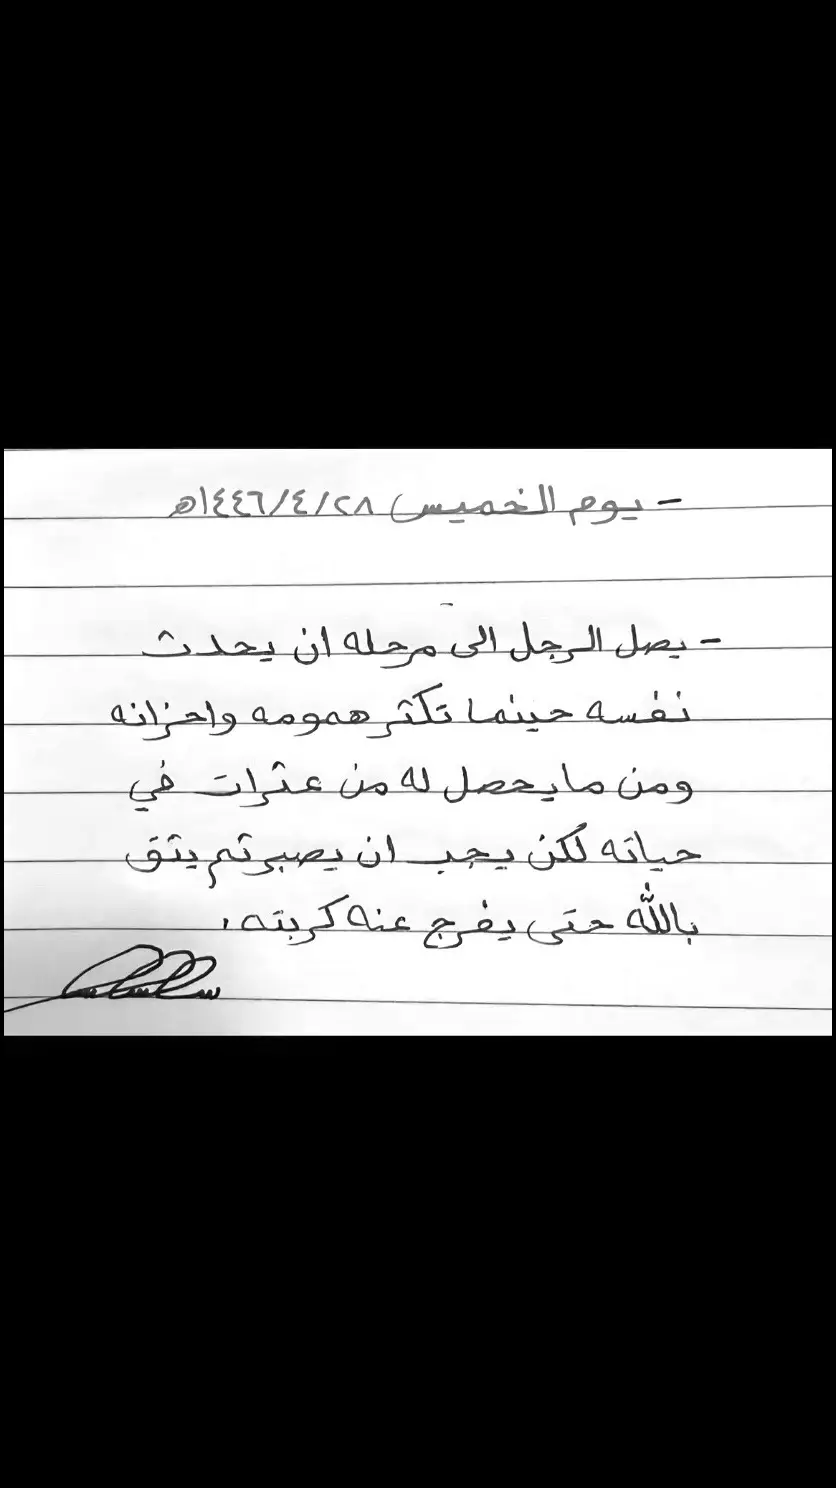 - يوم الخميس ١٤٤٦/٤/٢٨هـ
- يصل الرجل الى مرحله ان يحدث
نفسه حينما تكثر همومه واحزانه
ومن مايحصل له من عثرات في
حياته لكن يجب ان يصبر ثم يثق
بالله حتى يفرج عنه كربته .